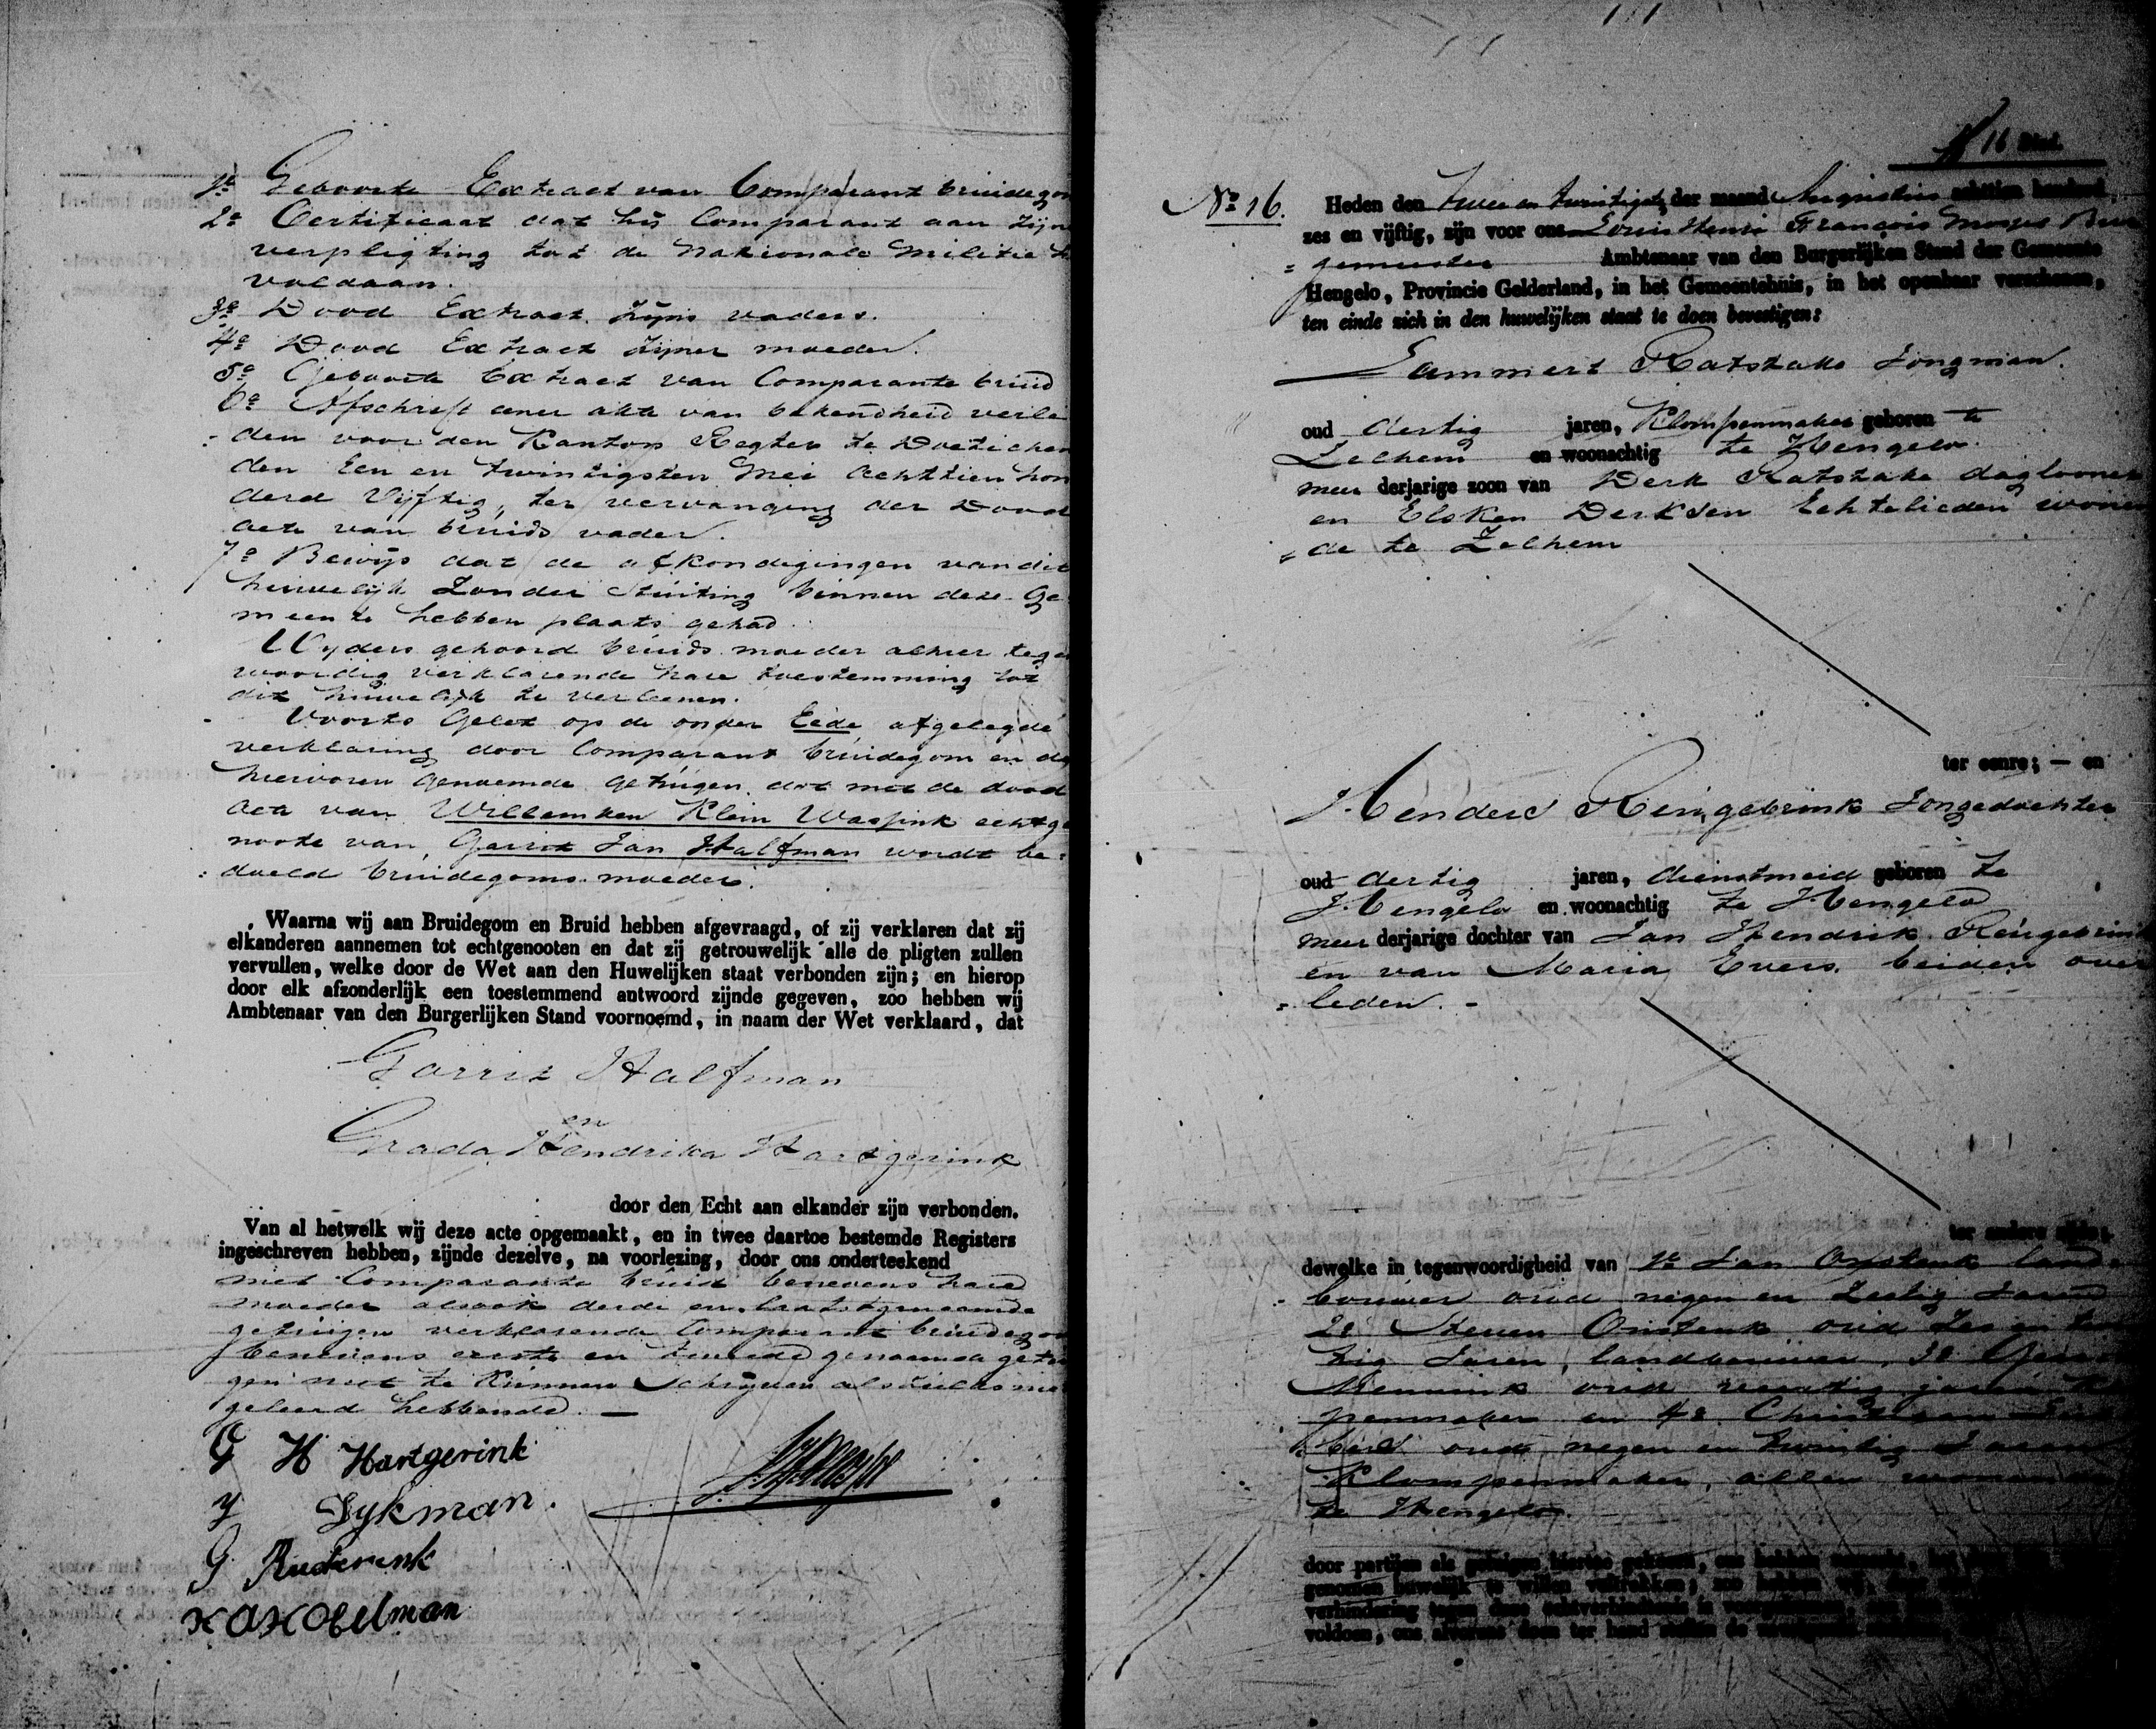 1e Geboorte Extract van Comparant bruidegom
2e Certificaat dat hij Comparant aan zijn
verpligting tot de Nationale Militie h
voldaan.
3e Dood Extract zijns vaders.
4e Dood Extract zijner moeder.
5e Geboorte Extract van Comparante bruid
6e Afschrift eener akte van bekendheid verle
den voor den Kanton Regter te Doetichem
den Een en twintigsten Mei achttien hon
derd Vijftig, ter vervanging der Dood
acte van bruids vader.
7e Bewijs dat de afkondigingen van dit
huwelijk zonder stuiting binnen deze Ge
meente hebben plaats gehad.
Wyders gehoord bruids moeder alhier tegen
woordig verklarende hare toestemming tot
dit huwelijk te verleenen.
Voorts Gelet op de onder Eede afgelegde
verklaring door Comparant bruidegom en de
hiervoren genoemde getuigen dat met de dood
acte van Willemken Klein Wassink echtge
noote van Gerrit Jan Halfman wordt be=
doeld bruidegoms moeder.
Waarna wij aan Bruidegom en Bruid hebben afgevraagd, of zij verklaren dat zij
elkanderen aannemen tot echtgenooten en dat zij getrouwelijk alle de pligten zullen
vervullen, welke door de Wet aan den Huwelijken staat verbonden zijn; en hierop
door elk afzonderlijk een toestemmend antwoord zijnde gegeven, zoo hebben wij
Ambtenaar van den Burgerlijken Stand voornoemd, in naam der Wet verklaard, dat
Garrit Halfman
en
Grada Hendrika Hartgerink
door den Echt aan elkander zijn verbonden.
Van al hetwelk wij deze acte opgemaakt, en in twee daartoe bestemde Registers
ingeschreven hebben, zijnde dezelve, na voorlezing, door ons onderteekend
met Comparante bruid benevens hare
moeder alsook derde en laatstgenoemde
getuigen verklarende Comparant bruidegom
benevens eerste en tweede genoemde getui
gen niet te kunnen schrijven als zulks niet
geleerd hebbende.
G H Hartgerink
Dykman.
G Ruderink
16 Blad.
No 16. Heden den twee en twintigste der maand Augustus achttien honderd
zes en vijftig, zijn voor ons Louis Henri Francois Moyes Bur
= gemeester Ambtenaar van den Burgerlijken Stand der Gemeente
Hengelo, Provincie Gelderland, in het Gemeentehuis, in het openbaar verschenen,
ten einde zich in den huwelijken staat te doen bevestigen:
Lammert Ratstake Jongman.
oud dertig jaren, Klompenmaker geboren te
Zelhem en woonachtig te Hengelo.
meer derjarige zoon van Derk Ratstake daglooner
en Elsken Derksen Echtelieden wonen
= de te Zelhem
ter eenre; — en
Hendere Rengebrink Jongedochter
oud dertig jaren, dienstmeid geboren te
Hengelo en woonachtig te Hengelo
meer derjarige dochter van Jan Hendrik Rengebrink
en van Maria Evers beiden over
= leden. -
ter andere zijde;
dewelke in tegenwoordigheid van 1e Jan Onstenk land=
bouwer oud negen en Zestig Jaren
2e Steven Onstenk oud Zes en
tig Jaren, landbouwer, 3e
oud veertig jaren
penmaker en 4e Christiaan
oud negen en twintig Jaren
Klompenmaker, allen wonende
te Hengelo.
door partijen als getuigen hiertoe gekozen, ons hebben
genomen huwelijk te willen voltrekken; zoo hebben wij,
verhindering tegen deze
voldoen, ons alvorens doen ter hand stellen de